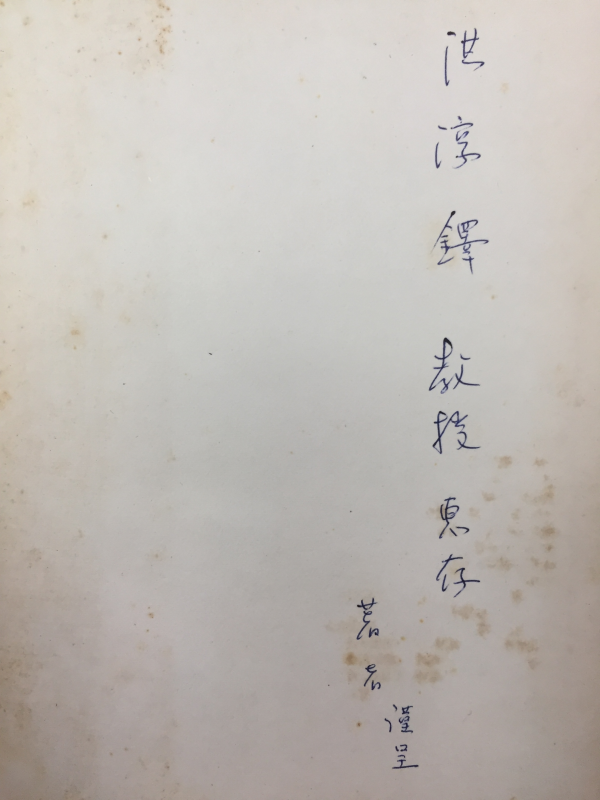 洪淳鐸 教授 惠存
著者
謹呈